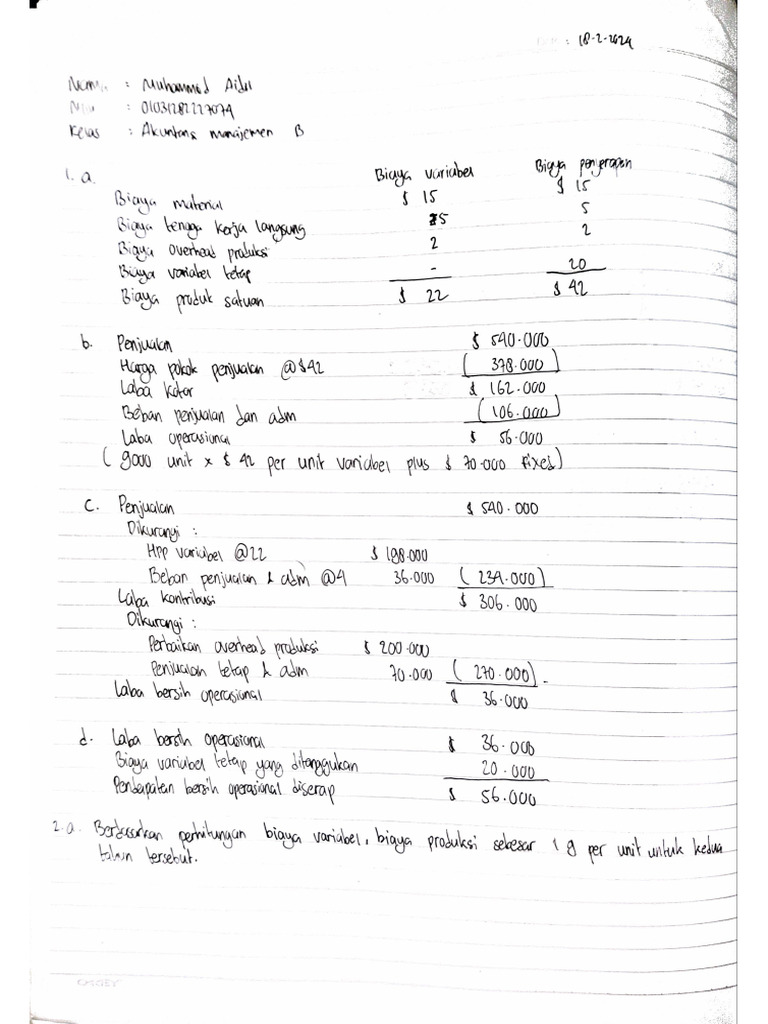 : 18-2-2024
Nama : Muhammad Aidil
Nim : 01031282227074
Kelas : Akuntans manajemen B
1. a. Biaya variabel Biaya penyerapan
Biaya material $ 15 $ 15
Biaya tenaga kerja langsung 5 5
Biaya overhead produksi 2 2
Biaya variabel tetap - 20
Biaya produk satuan $ 22 $ 42
b. Penjualan $ 540.000
Harga pokok penjualan @$42 ( 378.000)
Laba kotor $ 162.000
Beban penjualan dan adm (106.000)
Laba operasional $ 56.000
( 9000 unit x $ 42 per unit variabel plus $ 70.000 fixed)
c. Penjualan $ 540.000
Dikurangi :
HPP variabel @22 $ 198.000
Beban penjualan & adm @4 36.000 ( 234.000)
Laba kontribusi $ 306.000
Dikurangi :
Perbaikan overhead produksi $ 200.000
Penjualan tetap & adm 70.000 ( 270.000) -
Laba bersih operasional $ 36.000
d. Laba bersih operasional $ 36.000
Biaya variabel tetap yang ditanggukan 20.000
Pendapatan bersih operasional diserap $ 56.000
2.a. Berdasarkan perhitungan biaya variabel, biaya produksi sebesar 9 per unit untuk kedua
tahun tersebut.